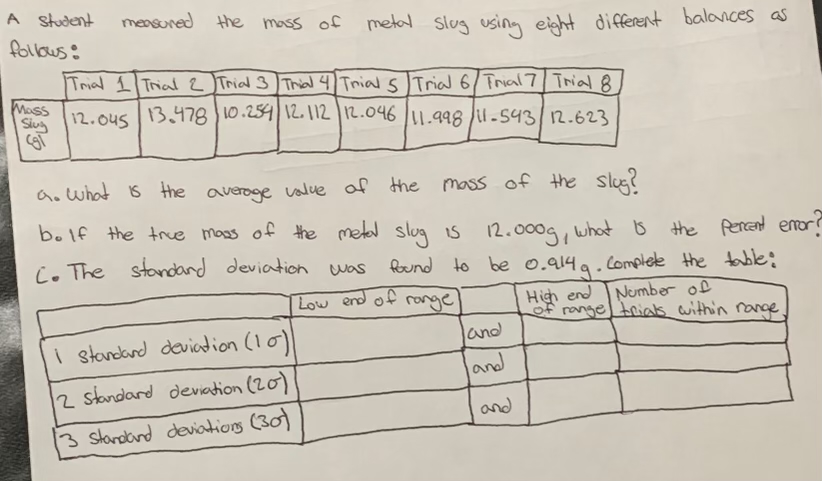 A student measured the mass of metal slug using eight different balances as
follows:
Trial 1 Trial 2 Trial 3 Trial 4 Trial 5 Trial 6 Trial 7 Trial 8
Mass Slug (g) 12.045 13.478 10.254 12.112 12.046 11.998 11.543 12.623
a. What is the average value of the mass of the slug?
b. If the true mass of the metal slug is 12.000g, what is the percent error?
C. The standard deviation was found to be 0.914g. Complete the table:
Low end of range High end of range Number of trials within range
1 standard deviation (1σ) and
2 standard deviation (2σ) and
3 standard deviations (3σ) and